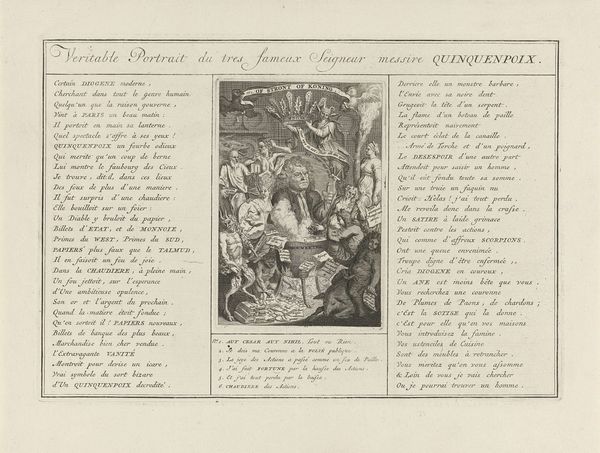 Veritable Portrait du tres fameux Seigneur messire QUINQUENPOIX.
Certain DIOGENE moderne,
Cherchant dans tout le genre humain
Quelqu'un que la raison gouverne,
Vint à PARIS un beau matin:
Il portoit en main sa lanterne.
Quel spectacle s'offre à ses yeux!
QUINQUENPOIX un fourbe odieux
Qui merite qu'un coup de berne
Lui montre le faubourg des Cieux
Je trouve, dit-il, dans ces lieux
Des foux de plus d'une maniere.
Il fut surpris d'une chaudiere:
Elle bouilloit sur un foier:
Un Diable y bruloit du papier,
Billets d'ETAT, et de MONNOIE,
Primes du WEST, Primes du SUD,
PAPIERS plus faux que le TALMUD,
Il en faisoit un feu de joie.
Dans la CHAUDIERE, à pleine main,
Un fou jettoit, sur l'esperance
D'Une ambitieuse opulence,
Son or et l'argent du prochain.
Quand la matiere étoit fondue;
Qu'en sorteit il? PAPIERS nouveaux,
Billets de banque des plus beaux,
Marchandise bien cher vendue.
l'Extravagante VANITÉ
Montroit pour devise un icare,
Vrai symbole du sort bizare
D'Un QUINQUENPOIX decredité.
OF STRONT OF KONING
N°1. AUT CESAR AUT NIHIL. Tout ou Rien.
2. Je dois ma Couronne a la FOLIE publique.
3. La joye des Actions a passé comme un feu de Paille.
4. J'ai fait FORTUNE par la hausse des Actions.
5. Et j'ai tout perdu par la baisse.
6. CHAUDIERE des Actions.
Derriere elle un monstre barbare,
l'Envie avec sa noire dent
Grugeoit la tête d'un serpent.
La flame d'un boteau de paille
Representoit naivement
Le court éclat de la canaille
Armé de Torche et d'un poignard,
Le DESESPOIR d'une autre part
Attendoit pour saisir un homme,
Qu'il eût fondu toute sa somme.
Sur une truie un faquin nu
Crioit: Helas! j'ai tout perdu.
Me revoila donc dans la crasse.
Un SATIRE à laide grimace
Pestoit contre les actions,
Qui comme d'affreux SCORPIONS
Ont une queue envenimée.
Troupe digne d'être enfermée,
Cria DIOGENE en couroux,
Un ANE est moins bête que vous.
Vous recherchez une couronne
De Plumes de Paons, de chardons;
c'Est la SOTISE qui la donne.
c'Est pour elle qu'en vos maisons
Vous introduisez la famine.
Vos ustenciles de Cuisine
Sont des meubles à retrancher.
Vous meritez qu'en vous assomme
& Loin de vous je vais chercher
Ou je pourrai trouver un homme.